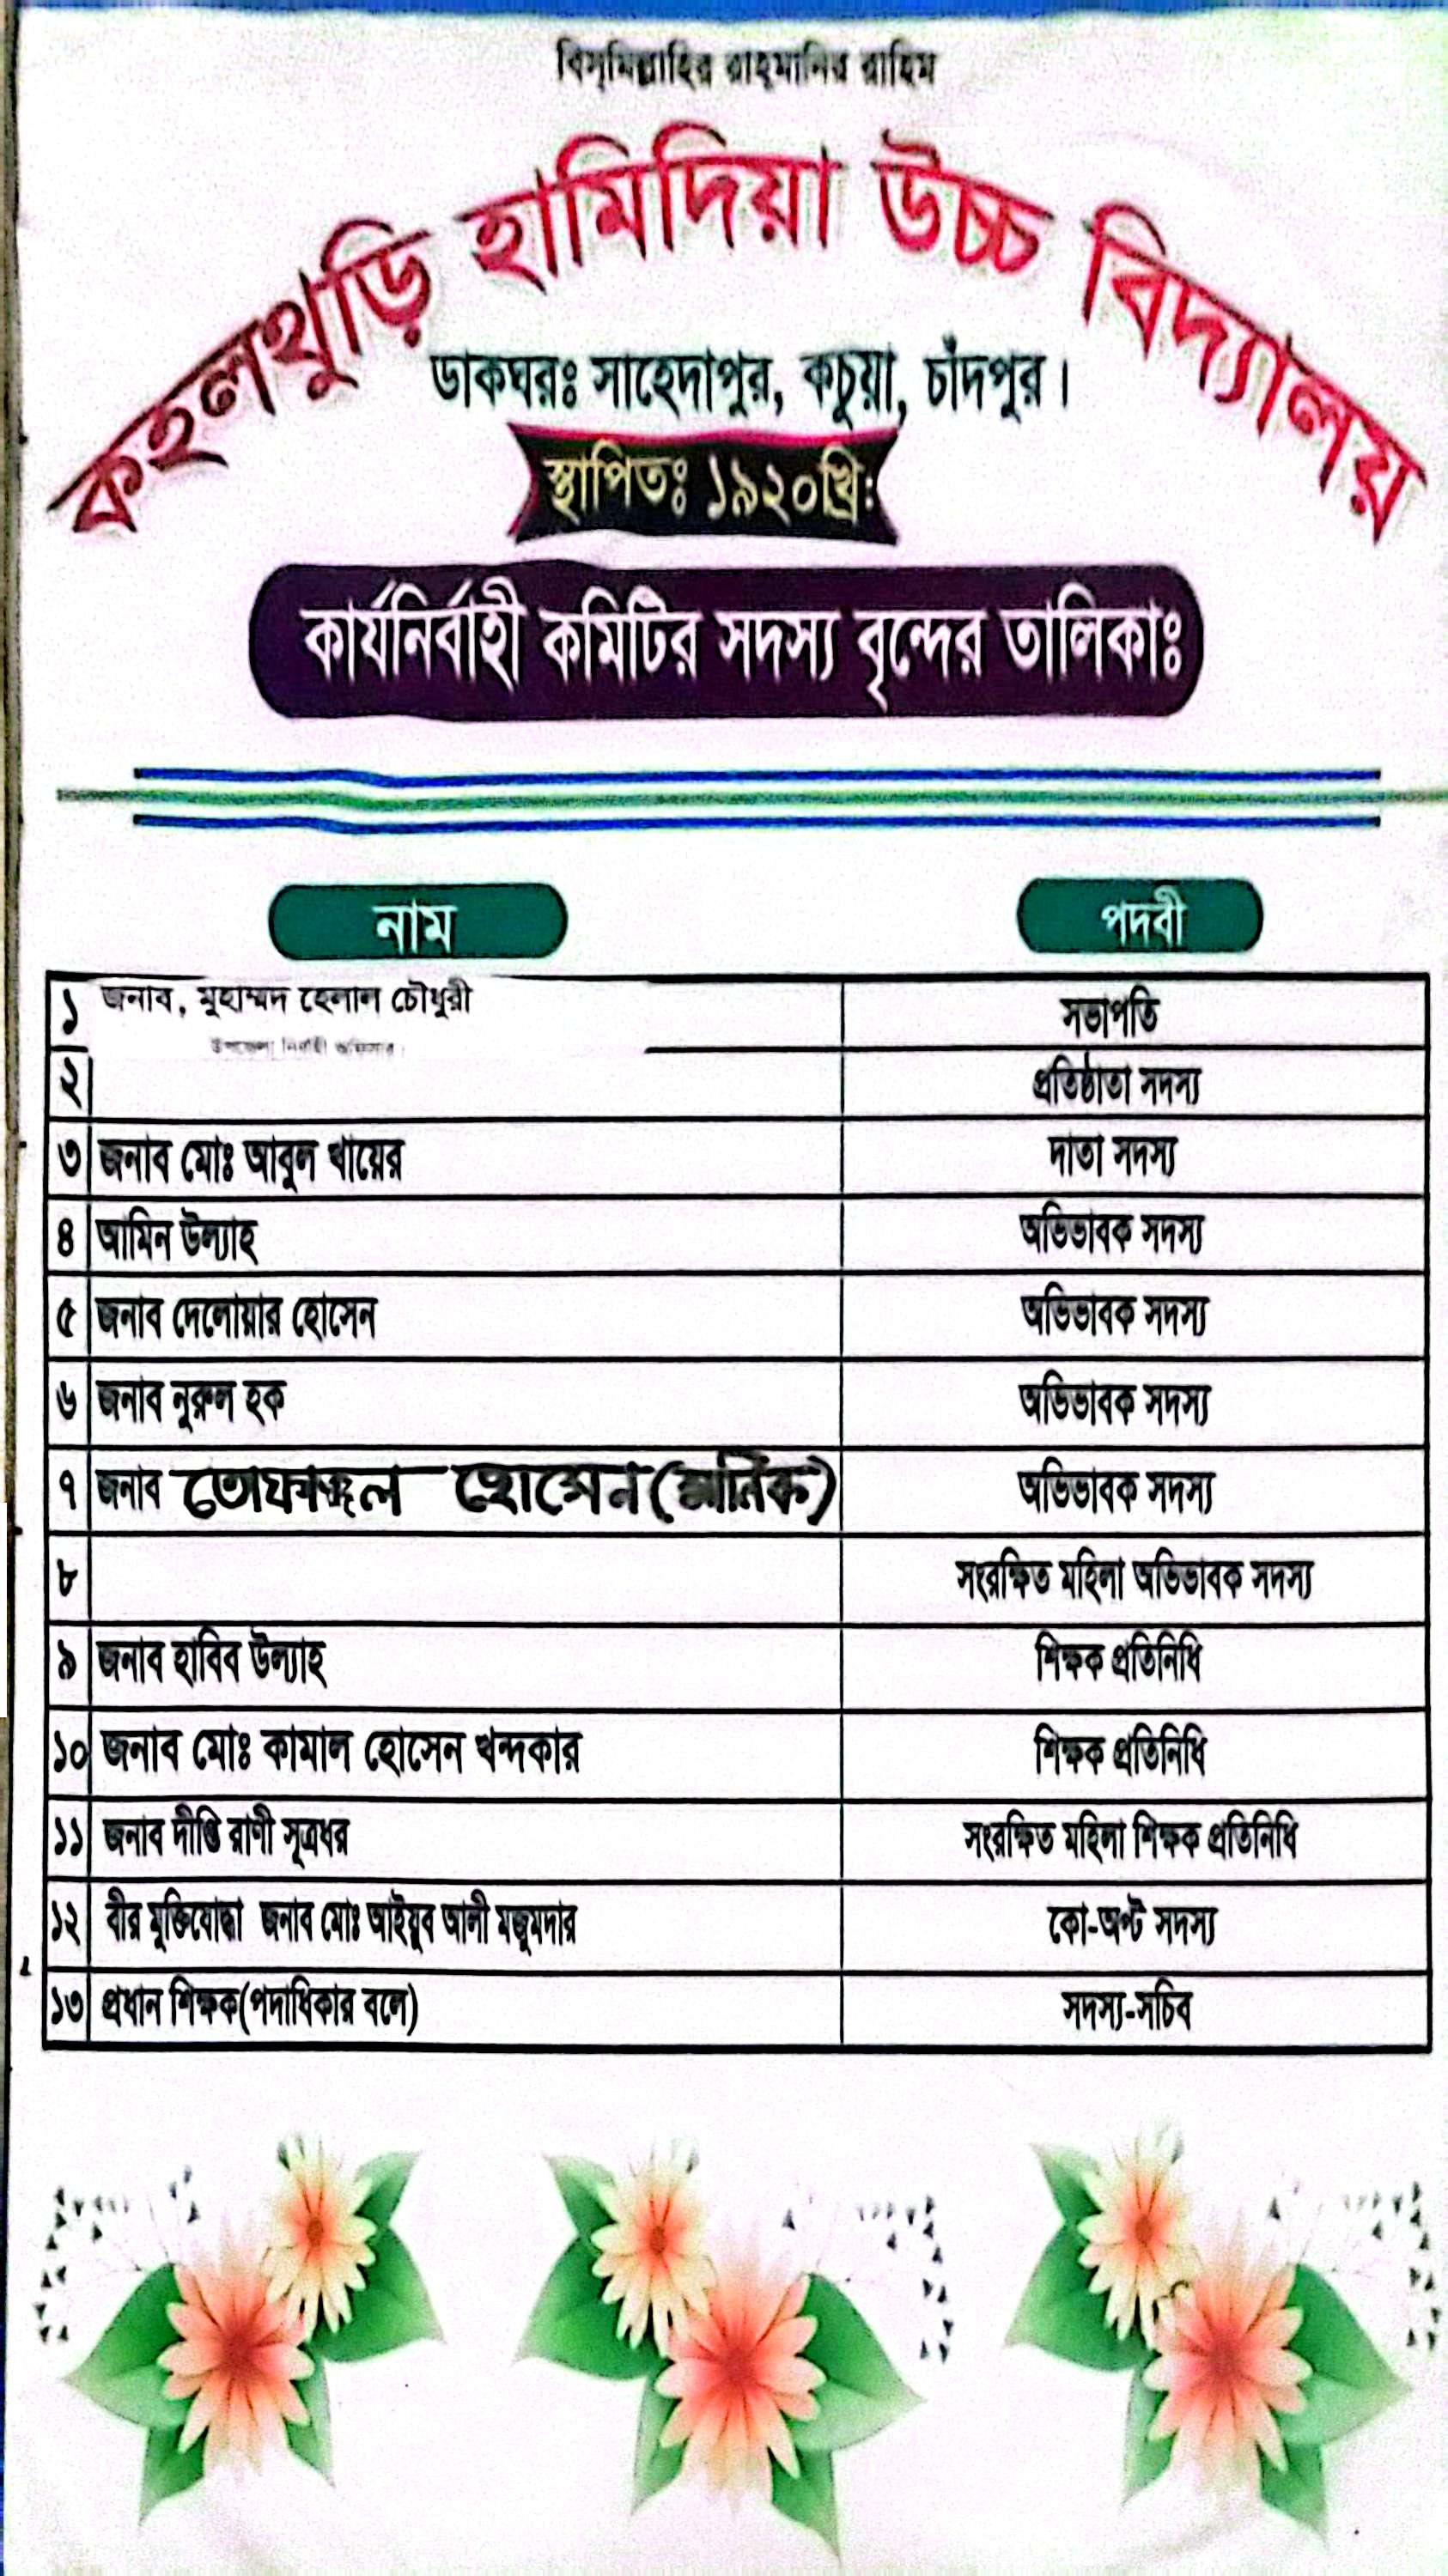 বিস্‌মিল্লাহির রাহ্‌মানির রাহিম
কহলথুড়ি হামিদিয়া উচ্চ বিদ্যালয়
ডাকঘরঃ সাহেদাপুর, কচুয়া, চাঁদপুর।
স্থাপিতঃ ১৯২০খ্রিঃ
কার্যনির্বাহী কমিটির সদস্য বৃন্দের তালিকাঃ
নাম পদবী
১ জনাব, মুহাম্মদ হেলাল চৌধুরী সভাপতি
উপজেলা নির্বাহী অফিসার।
২ প্রতিষ্ঠাতা সদস্য
৩ জনাব মোঃ আবুল খায়ের দাতা সদস্য
৪ আমিন উল্যাহ অভিভাবক সদস্য
৫ জনাব দেলোয়ার হোসেন অভিভাবক সদস্য
৬ জনাব নুরুল হক অভিভাবক সদস্য
৭ জনাব তোফাজ্জল হোসেন (মানিক) অভিভাবক সদস্য
৮ সংরক্ষিত মহিলা অভিভাবক সদস্য
৯ জনাব হাবিব উল্যাহ শিক্ষক প্রতিনিধি
১০ জনাব মোঃ কামাল হোসেন খন্দকার শিক্ষক প্রতিনিধি
১১ জনাব দীপ্তি রাণী সূত্রধর সংরক্ষিত মহিলা শিক্ষক প্রতিনিধি
১২ বীর মুক্তিযোদ্ধা জনাব মোঃ আইয়ুব আলী মজুমদার কো-অপ্ট সদস্য
১৩ প্রধান শিক্ষক(পদাধিকার বলে) সদস্য-সচিব